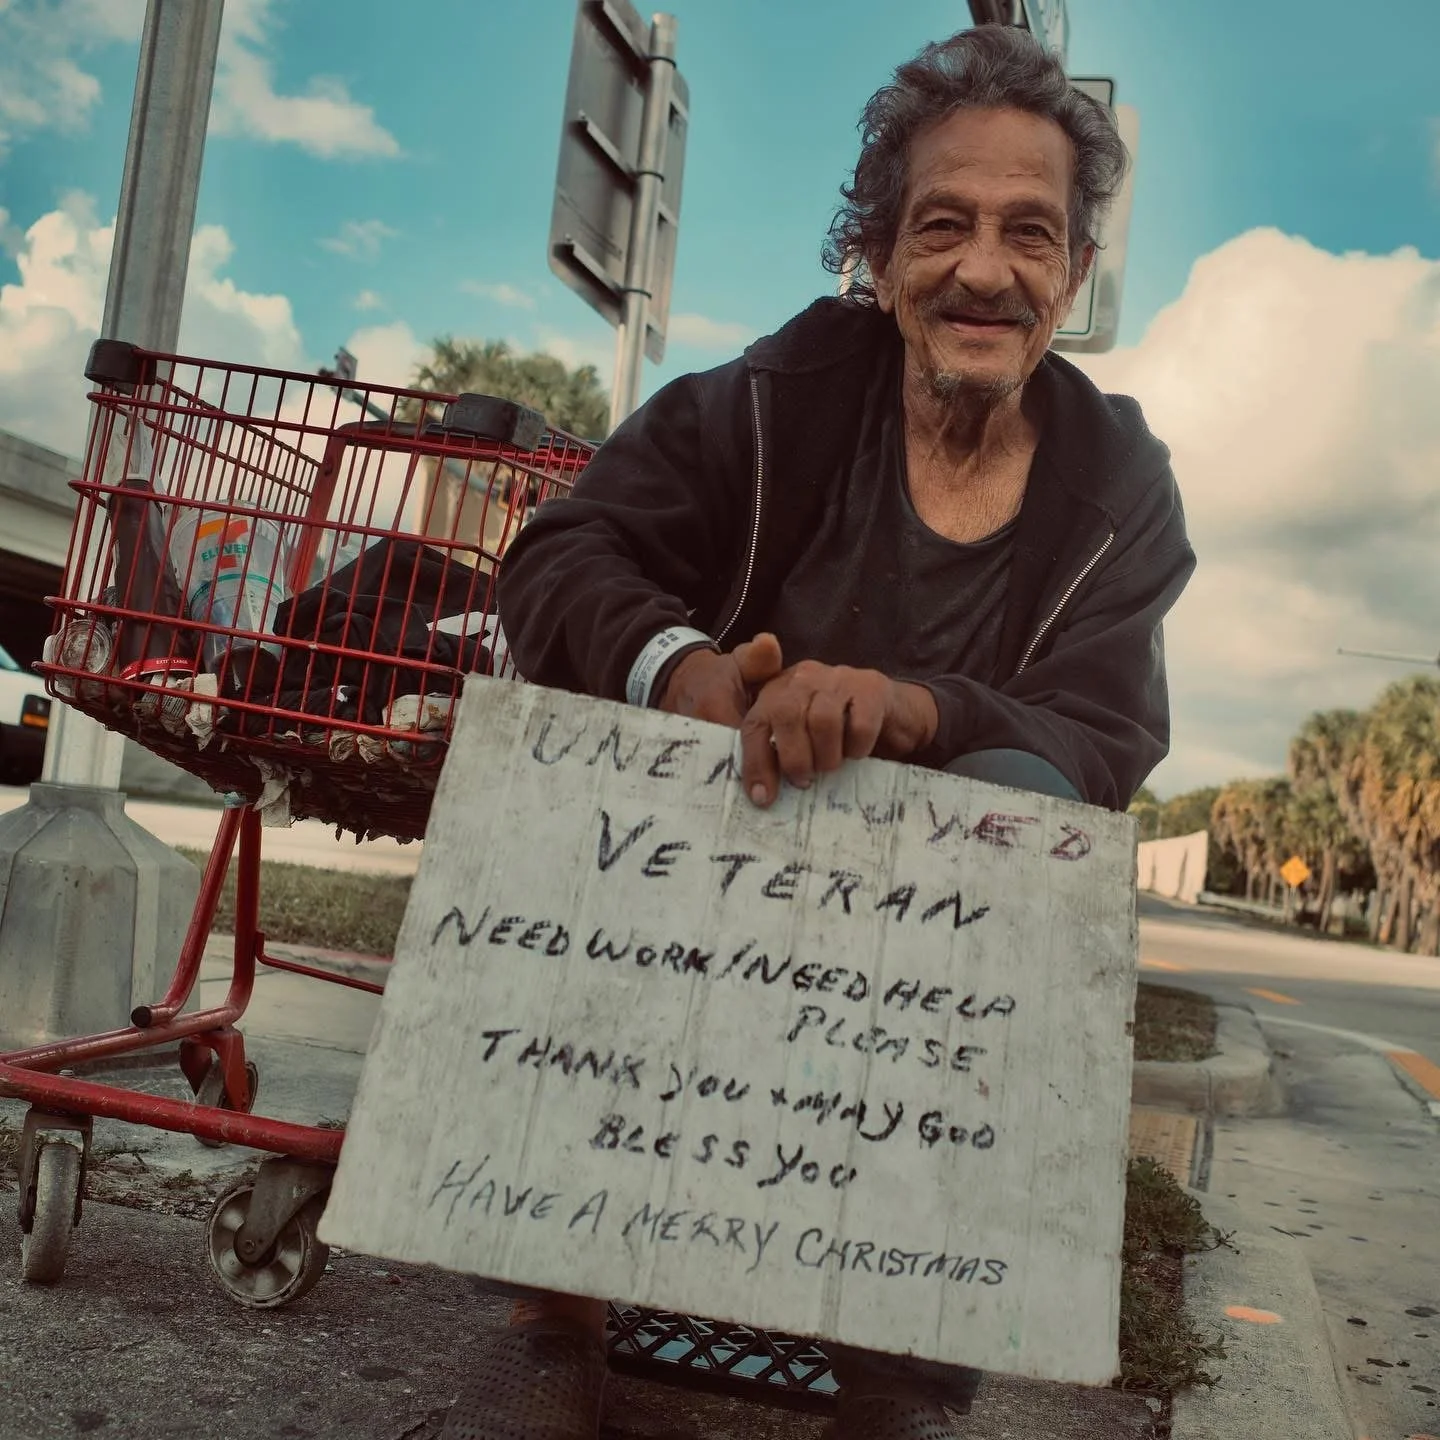 ELEVE
EXTRA LARGE
UNEM YED
VETERAN
NEED WORK/NEED HELP
PLEASE
THANK YOU + MAY GOD
BLESS YOU
HAVE A MERRY CHRISTMAS